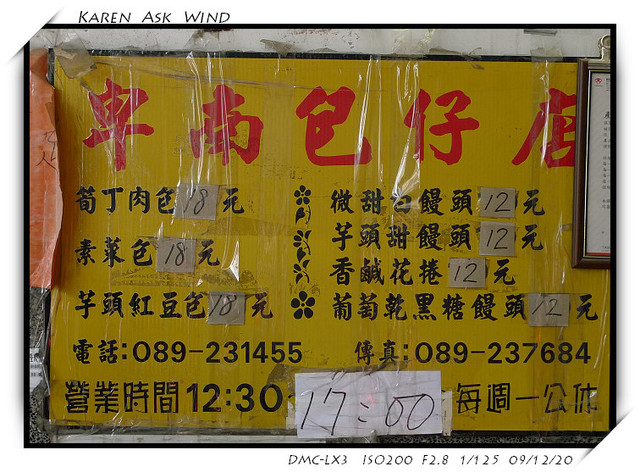 KAREN ASK WIND
卑南包仔店
筍丁肉包18元
素菜包18元
芋頭紅豆包18元
微甜白饅頭12元
芋頭甜饅頭12元
香鹹花捲12元
葡萄乾黑糖饅頭12元
電話:089-231455 傳真:089-237684
營業時間12:30 17:00 每週一公休
DMC-LX3 ISO200 F2.8 1/125 09/12/20